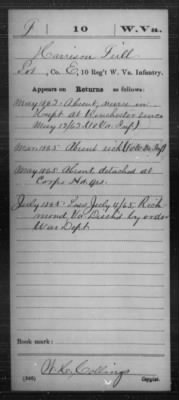 T 10 W.Va.
Harrison Tull
Pvt, Co. E, 10 Reg't W. Va. Infantry.
Appears on Returns as follows:
May 1863 Absent, nurse in
Hospt at Winchester since
May 12/63
Absent sick
May 1865 Absent, detached at
Corps Hd. qrs.
July 1865 Loss, July 9/65 Rich
mond, Va. Disch'd by order
War Dept.
Book mark:
Collings
(546) Copyist.